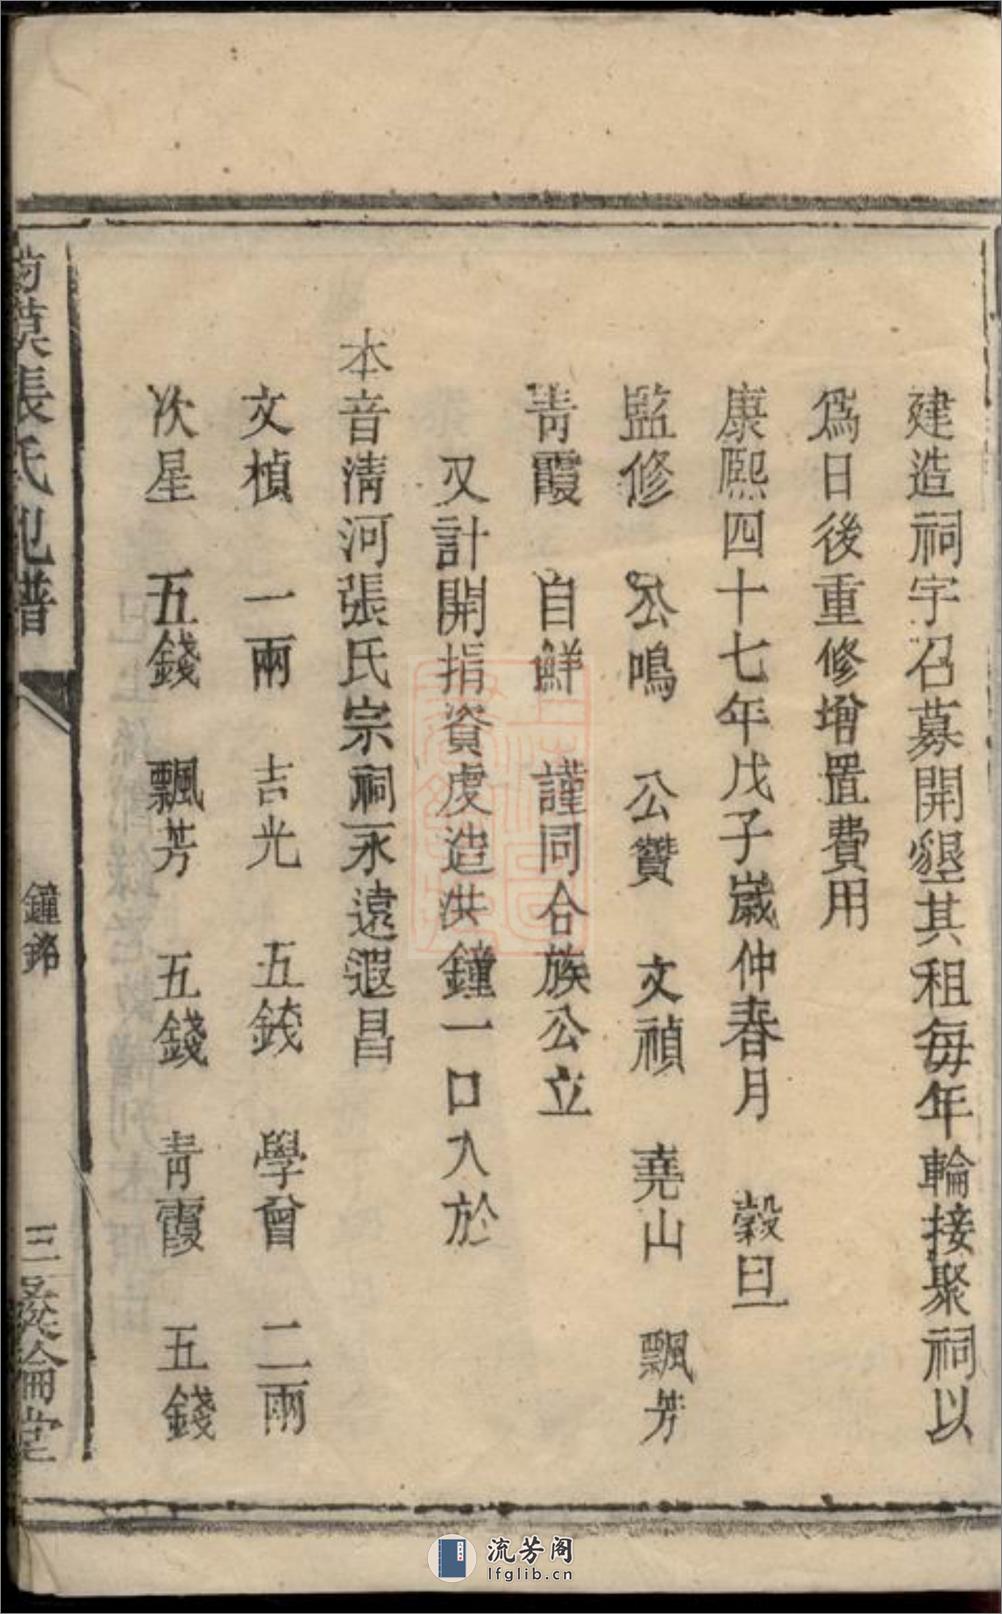 建造祠宇召募開墾其租每年輪接聚祠以
爲日後重修增置費用
康熙四十七年戊子歲仲春月 穀旦
監修 公鳴 公贊 文禎 堯山 飄芳
靑霞 自鮮 謹同合族公立
又計開指資虔造洪鐘一口入於
本音淸河張氏宗祠永遠遐昌
文楨 一兩 吉光 五錢 學曾 二兩
次星 五錢 飄芳 五錢 靑霞 五錢
張氏
譜
鐘銘
三
倫堂
流芳阁
lfglib.cn